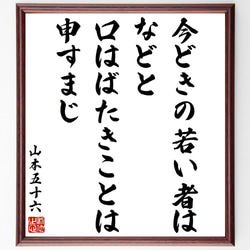 今どきの若い者は
などと
口はばたきことは
申すまじ
山本五十六